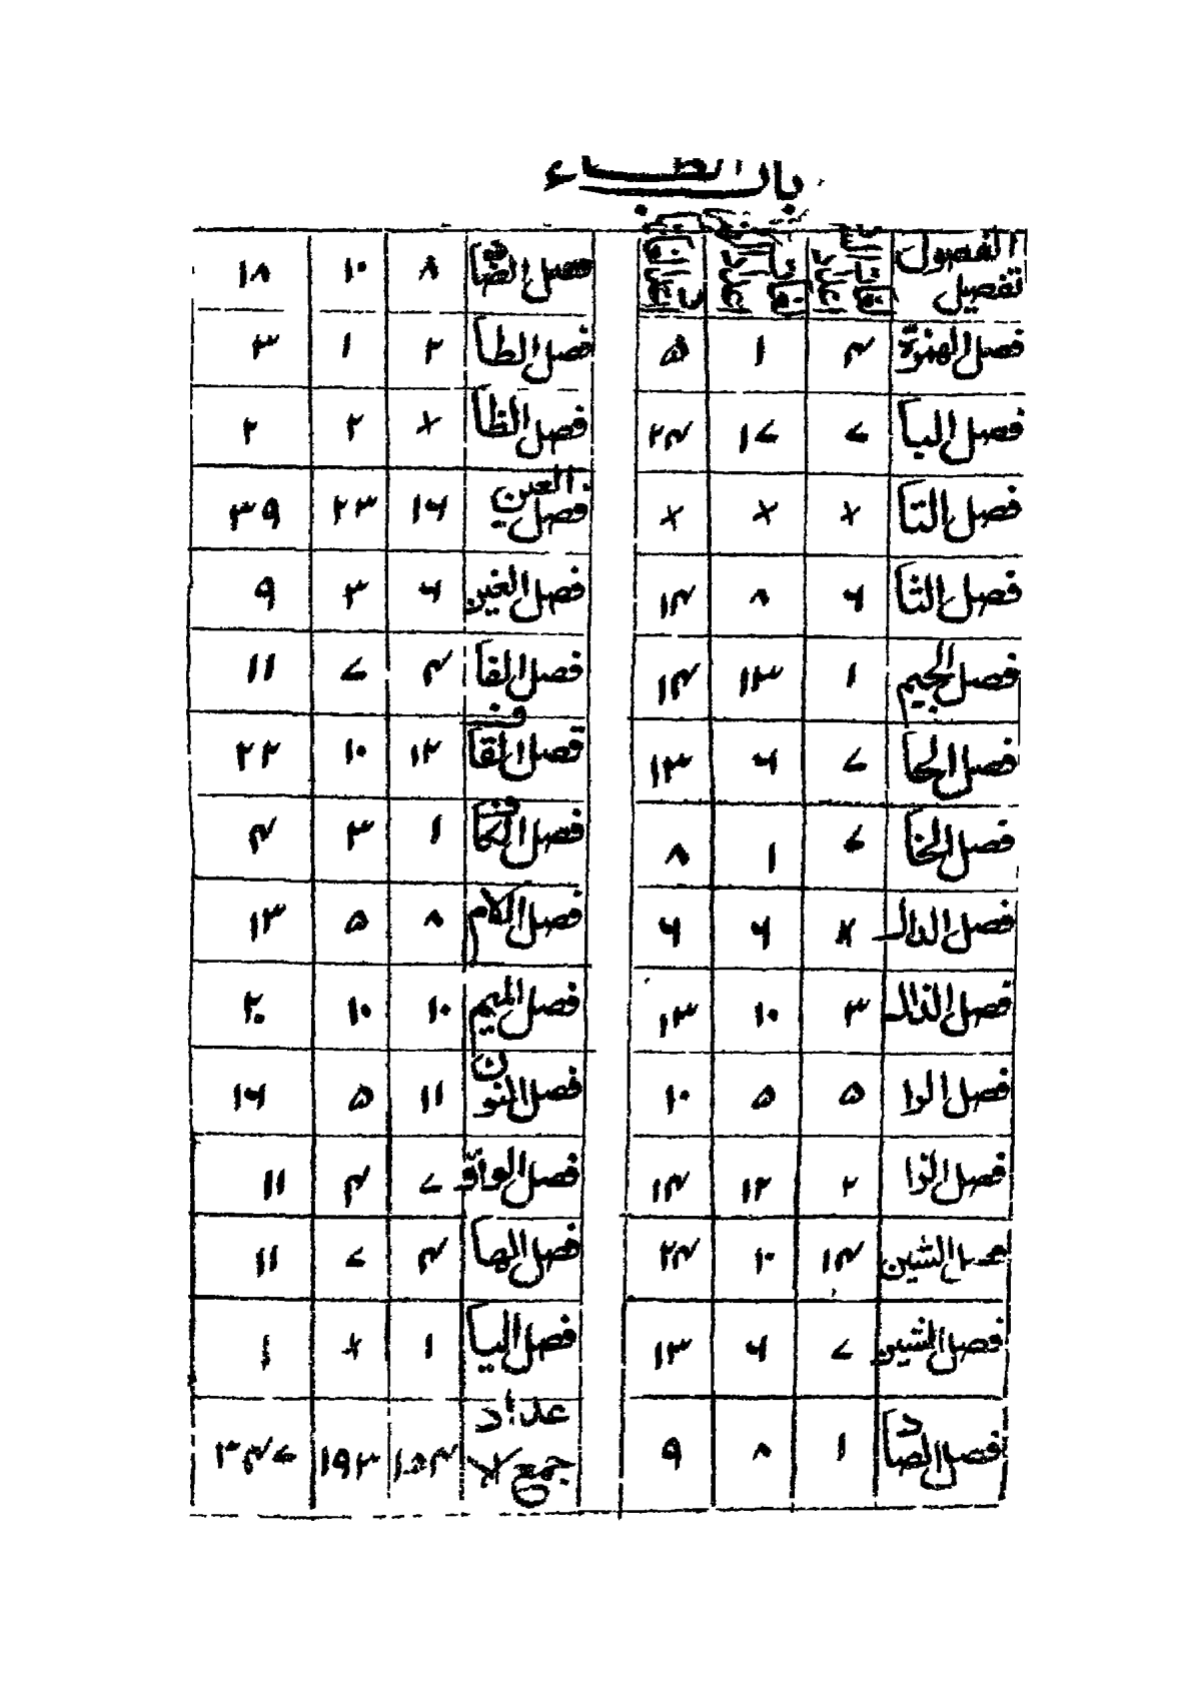 باب الطاء
تفصيل الفصول
فصل الهمزة ۴ ۱ ۵
فصل البا ۷ ۱۷ ۲۴
فصل التا × × ×
فصل الثا ۶ ۸ ۱۴
فصل الجيم ۱ ۱۳ ۱۴
فصل الحا ۷ ۶ ۱۳
فصل الخا ۷ ۱ ۸
فصل الدال × ۶ ۶
فصل الذال ۳ ۱۰ ۱۳
فصل الرا ۵ ۵ ۱۰
فصل الزا ۲ ۱۲ ۱۴
فصل السين ۱۴ ۱۰ ۲۴
فصل الشين ۷ ۶ ۱۳
فصل الصاد ۱ ۸ ۹
فصل الضاد ۸ ۱۰ ۱۸
فصل الطا ۲ ۱ ۳
فصل الظا × ۲ ۲
فصل العين ۱۶ ۲۳ ۳۹
فصل الغين ۶ ۳ ۹
فصل الفا ۴ ۷ ۱۱
فصل القاف ۱۲ ۱۰ ۲۲
فصل الكاف ۱ ۳ ۴
فصل اللام ۸ ۵ ۱۳
فصل الميم ۱۰ ۱۰ ۲۰
فصل النون ۱۱ ۵ ۱۶
فصل الواو ۷ ۴ ۱۱
فصل الها ۴ ۷ ۱۱
فصل اليا ۱ × ۱
جمع الاعداد ۱۵۴ ۱۹۳ ۳۴۷